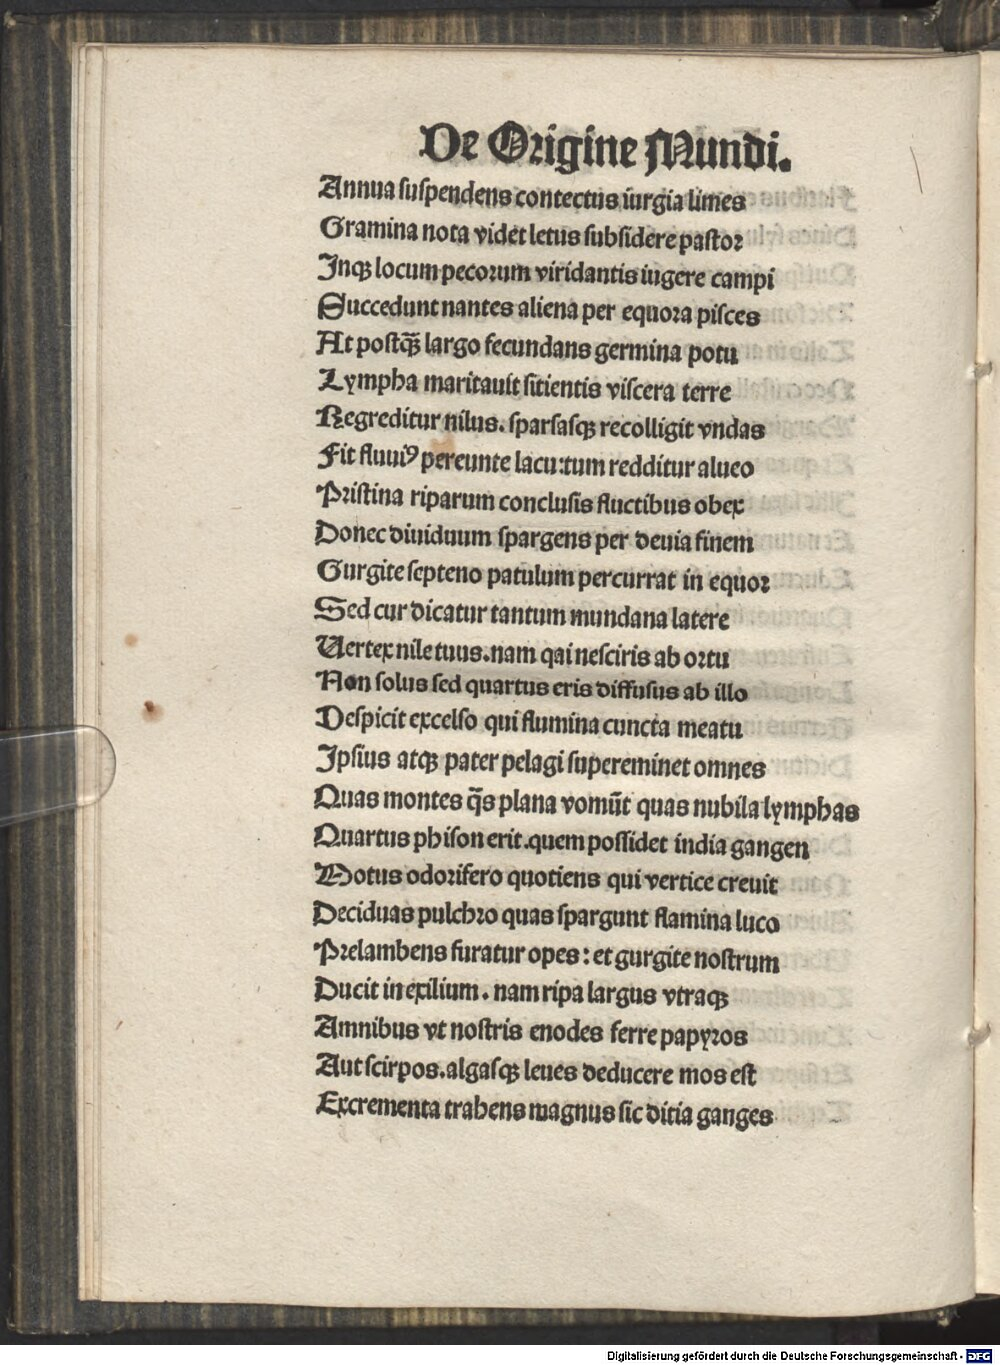 De Origine Mundi.
Annua suspendens contectus iurgia limes
Gramina nota videt letus subsidere pastor
Inqꝫ locum pecorum viridantis iugere campi
Succedunt nantes aliena per equora pisces
At postqꝫ̃ largo fecundans germina potu
Lympha maritauit sitientis viscera terre
Regreditur nilus. sparsasqꝫ recolligit vndas
Fit fluuiꝰ pereunte lacu:tum redditur alueo
Pristina riparum conclusis fluctibus obex
Donec diuiduum spargens per deuia finem
Gurgite septeno patulum percurrat in equor
Sed cur dicatur tantum mundana latere
Uertex nile tuus.nam qai nesciris ab ortu
Non solus sed quartus eris diffusus ab illo
Despicit excelso qui flumina cuncta meatu
Ipsius atqꝫ pater pelagi supereminet omnes
Quas montes q̃s plana vomũt quas nubila lymphas
Quartus phison erit.quem possidet india gangen
Motus odorifero quotiens qui vertice creuit
Deciduas pulchro quas spargunt flamina luco
Prelambens furatur opes: et gurgite nostrum
Ducit in exilium. nam ripa largus vtraqꝫ
Amnibus vt nostris enodes ferre papyros
Aut scirpos.algasqꝫ leues deducere mos est
Excrementa trahens magnus sic ditia ganges
Digitalisierung gefördert durch die Deutsche Forschungsgemeinschaft - DFG